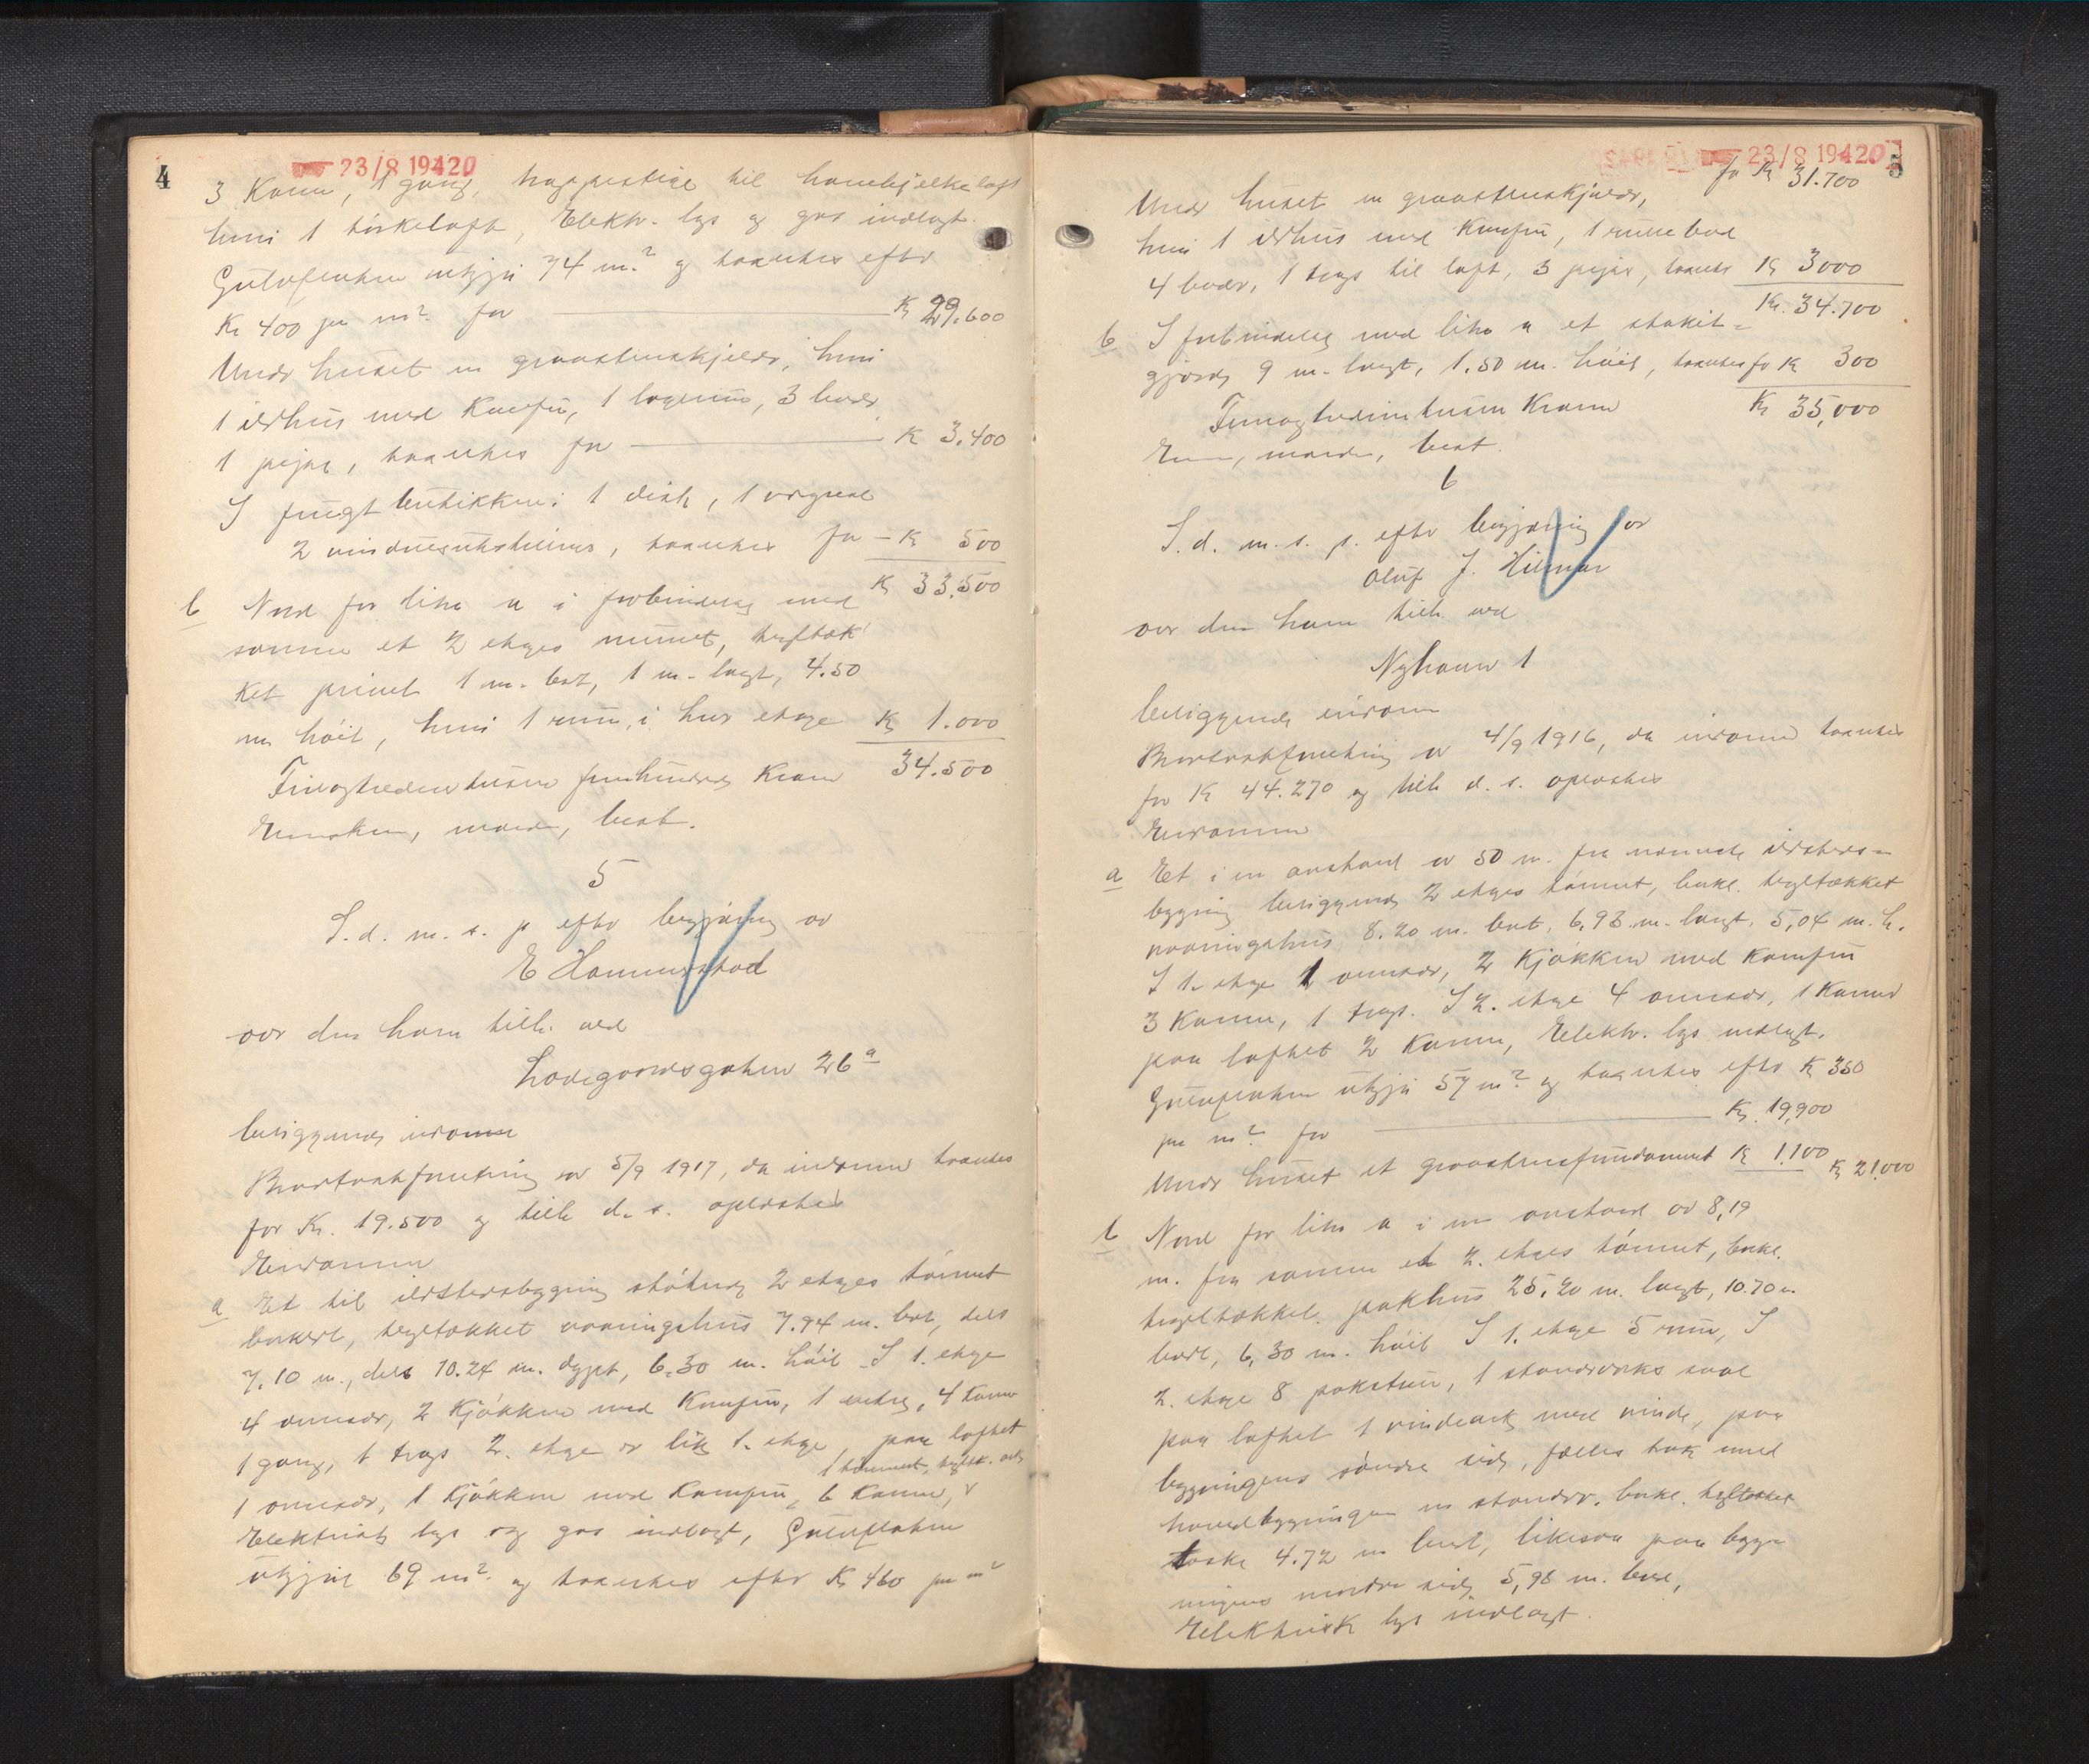 4
23/8 19420
3 Kamre, 1 gang, trappestige til hanebjelkeloft
hvori 1 tørkeloft, Elektr. lys og gas indlagt.
Gulvflaten utgjør 74 m.² og taxeres efter
Kr 400 per m² for Kr 29.600
Under huset en graastenskjelder, hvori
1 ildhus med Kamfun, 1 lagerrum, 3 boder
1 pejpe, taxeres for Kr 3.400
I frugtbutikken: 1 disk, 1
2 vinduesutstillinger, taxeres for Kr 500
Kr 33.500
b Nord for litra a i forbindelse med
samme et 2 etages muret, tegltæk-
ket privet 1 m. bret, 1 m. langt, 4.50
m høit, hvori 1 rum i hver etage Kr 1.000
34.500
Firetredivetusen femhundrede Kroner
, best.
5
S. d. m. s. p. efter begjæring av
E Hammerstad
over den ham tilh. ved
Ladegaardsgaten 26ª
beliggende eiendom
Branttaxtforretning av 5/9 1917, da eiendommen taxertes
for Kr. 19.500 og tilh. d. s.
Eiendommen
a Et til ildstedsbygning støtende 2 etages tømret
bordkl, tegltækket vaaningshus 7.94 m. bret, dels
7.10 m., dels 10.24 m. dypt, 6.30 m. høit. I 1. etage
4 værelser, 2 Kjøkken med Kamfun, 1 entre, 4 Kamre
1 gang, 1 trap. 2. etage er lik 1. etage, paa loftet
1 tømmret, tegltk. ark
1 værelse, 1 Kjøkken med Kamfun, 6 Kamre,
Elektrisk lys og gas indlagt, Gulvflaten
utgjør 69 m² og taxeres efter Kr 460 per m²
23/8 19420
5
for Kr 31.700
Under huset en graastenskjelder,
hvori 1 ildhus med Kamfun, 1 rullebod
4 boder, 1 trap til loft, 3 pejper, taxeres Kr 3000
Kr. 34.700
b I forbindelse med litra a et stakit-
gjærde 9 m. langt, 1.50 m. høit, taxeres for Kr 300
Kr 35,000
Femogtredivetusen Kroner
, best.
6
S. d. m. s. p. efter begjæring av
Oluf J. Hilmar
over den ham tilh. ved
Nyhavn 1
beliggende eiendom
Branttaxtforretning av 4/9 1916, da eiendommen taxertes
for Kr 44.270 og tilh. d. s.
Eiendommen
a Et i en avstand av 50 m. fra nærmeste ildsteds-
bygning beliggende 2 etages tømret, bordkl. tegltækket
vaaningshus 8.20 m. bret, 6,93 m. langt, 5,04 m. h.
I 1. etage 1 værelse, 2 Kjøkken med Kamfun
3 Kamre, 1 trap. I 2. etage 4 værelser, 1 Kamer
paa loftet 2 Kamre, Elektr. lys indlagt.
Gulvflaten utgjør 57 m² og taxeres efter Kr 350
per m² for Kr. 19,900
Under huset et graastensfundament Kr 1.100 Kr 21.000
b Nord for litra a i en avstand av 8,19
m. fra samme et 2. etages tømret, bordkl.
tegltækket pakhus 25,20 m. langt, 10.70 m
bredt, 6,30 m. høit I 1. etage 5 rum, I
2. etage 8 pakstuer, 1 standverks sval
paa loftet 1 vindeark med vinde, paa
bygningens søndre side, fælles tak med
hovedbygningen en standv. bordkl. tegltækket
4.72 m bredt, likesaa paa byg-
ningens nordre side 5,98 m. bred,
Elektrisk lys indlagt.